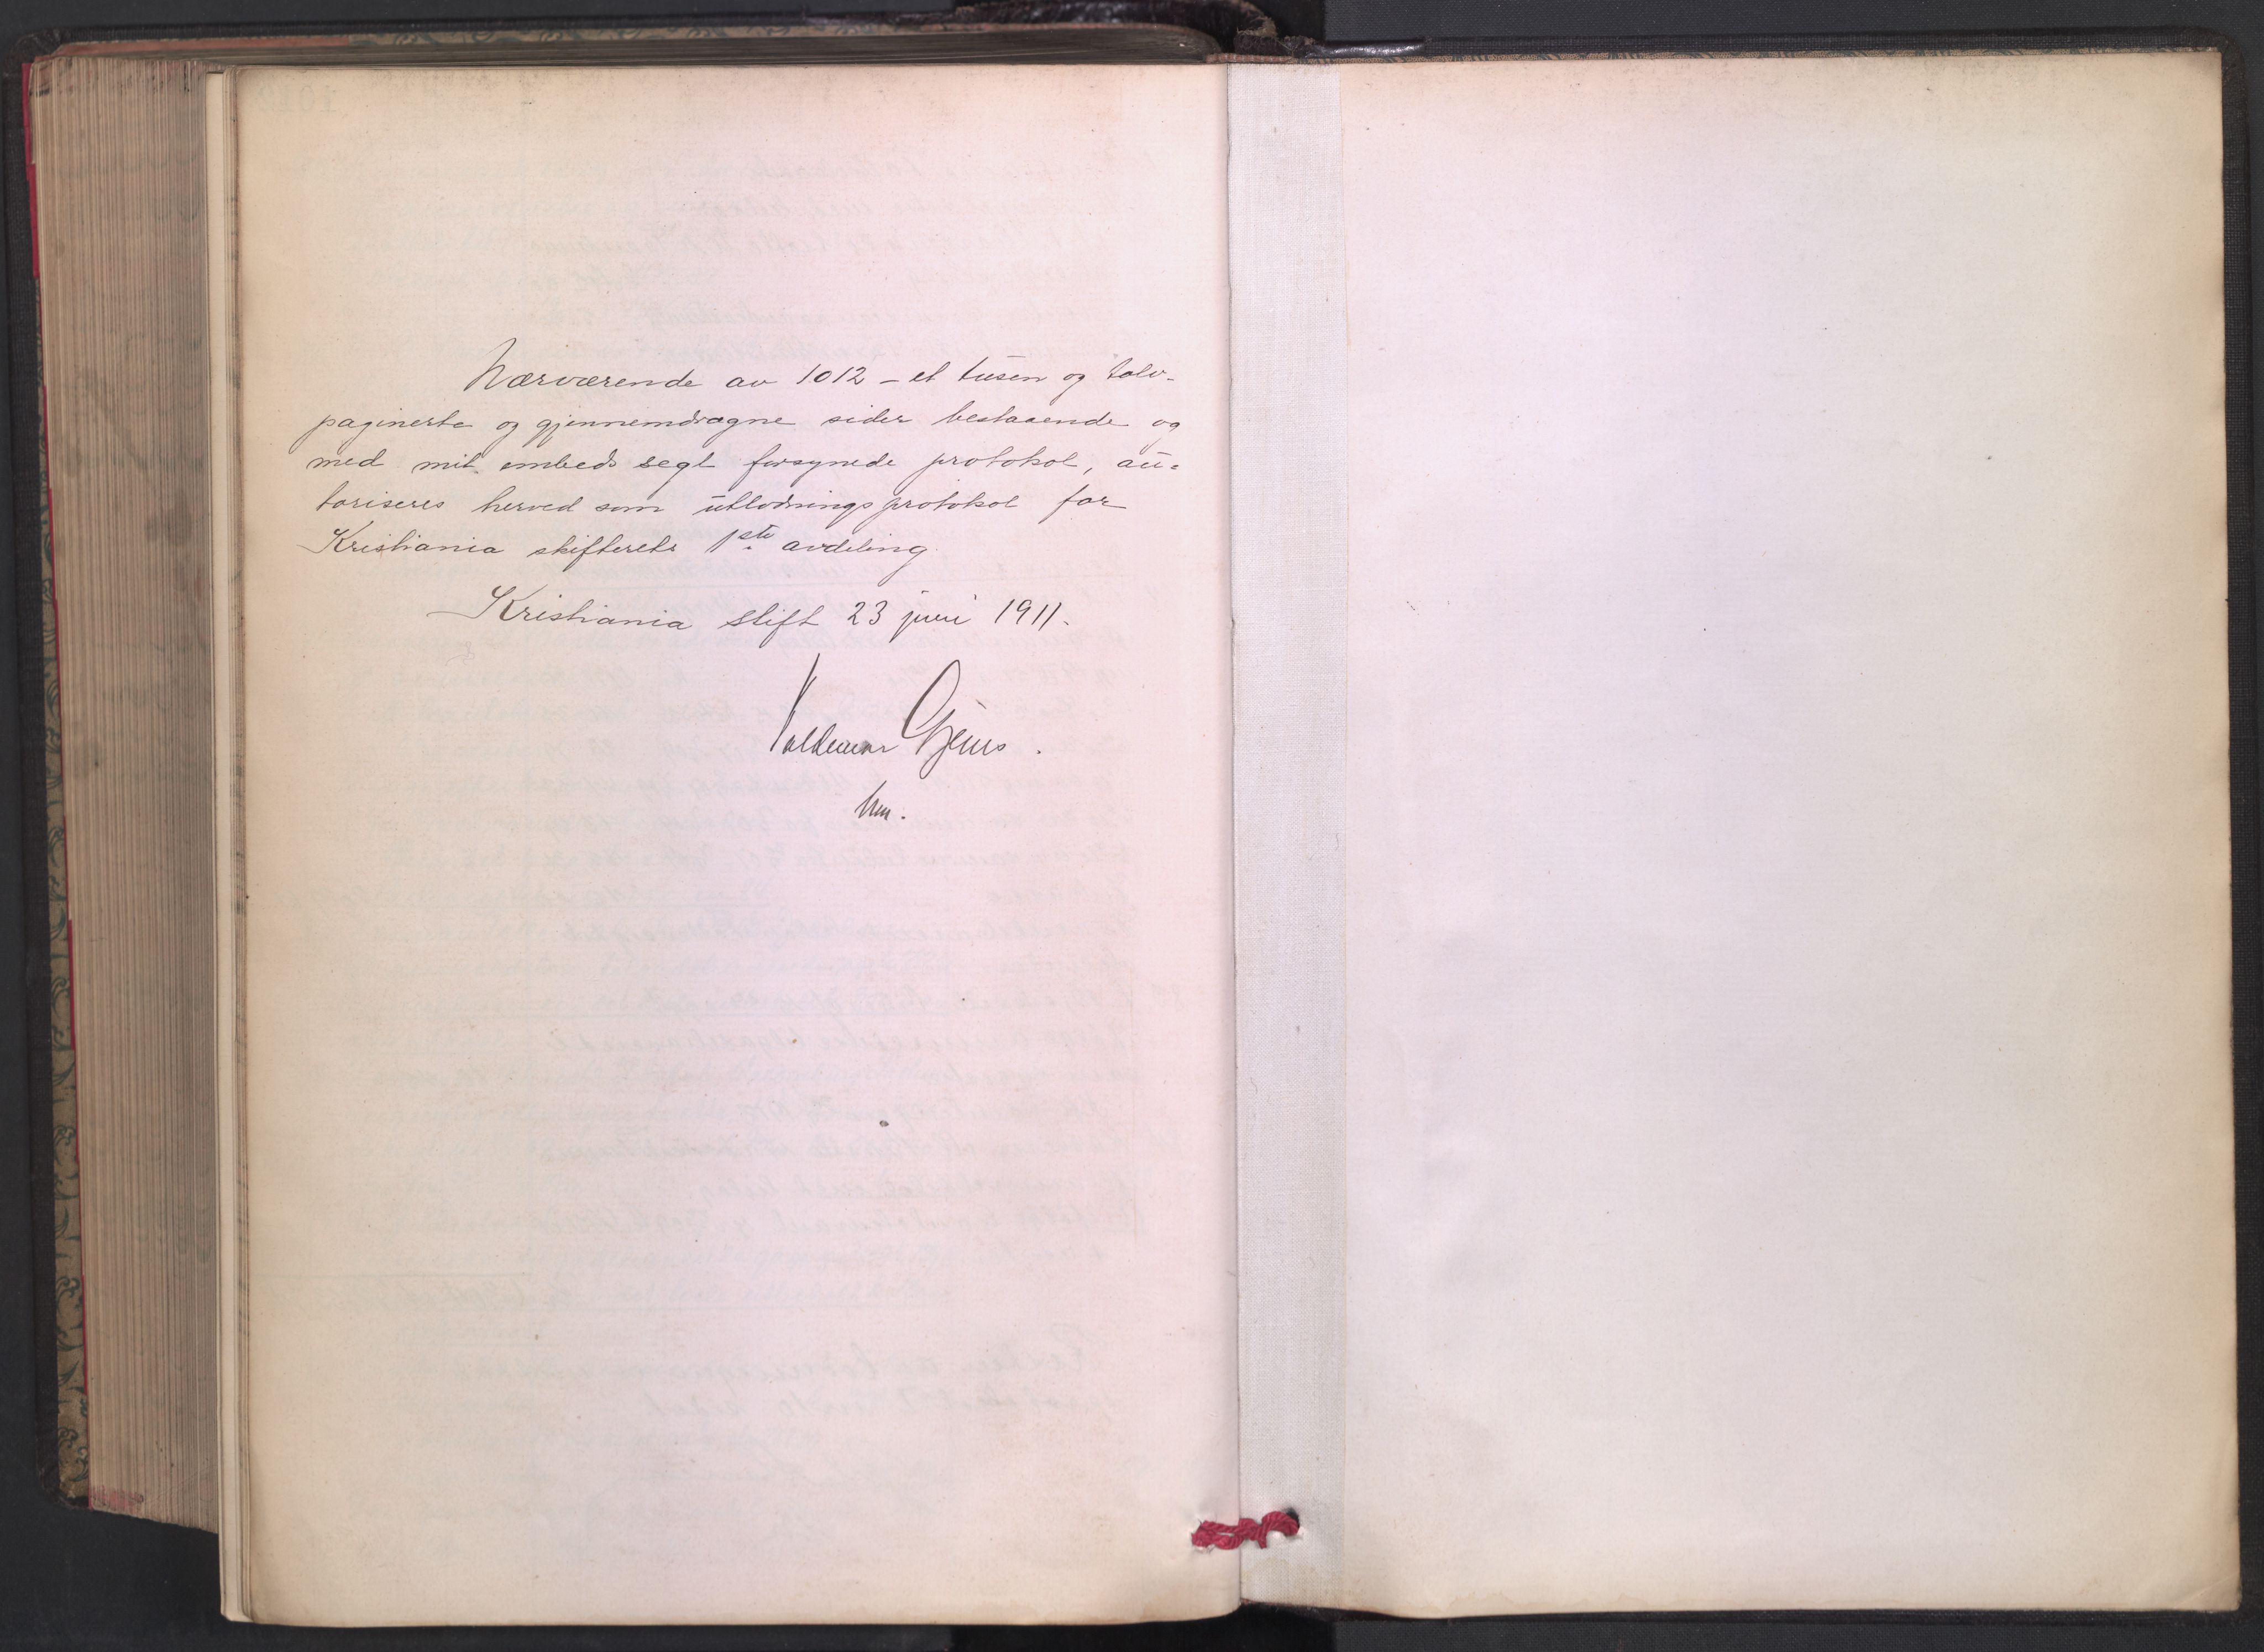 Nærværende av 1012 – et tusen og tolv –
paginerte og gjennemdragne sider bestaaende og
med mit embeds segl forsynede protokol, au=
toriseres herved som utlodningsprotokol for
Kristiania skifterets 1ste avdeling.
Kristiania stift 23 juni 1911.
Valdemar